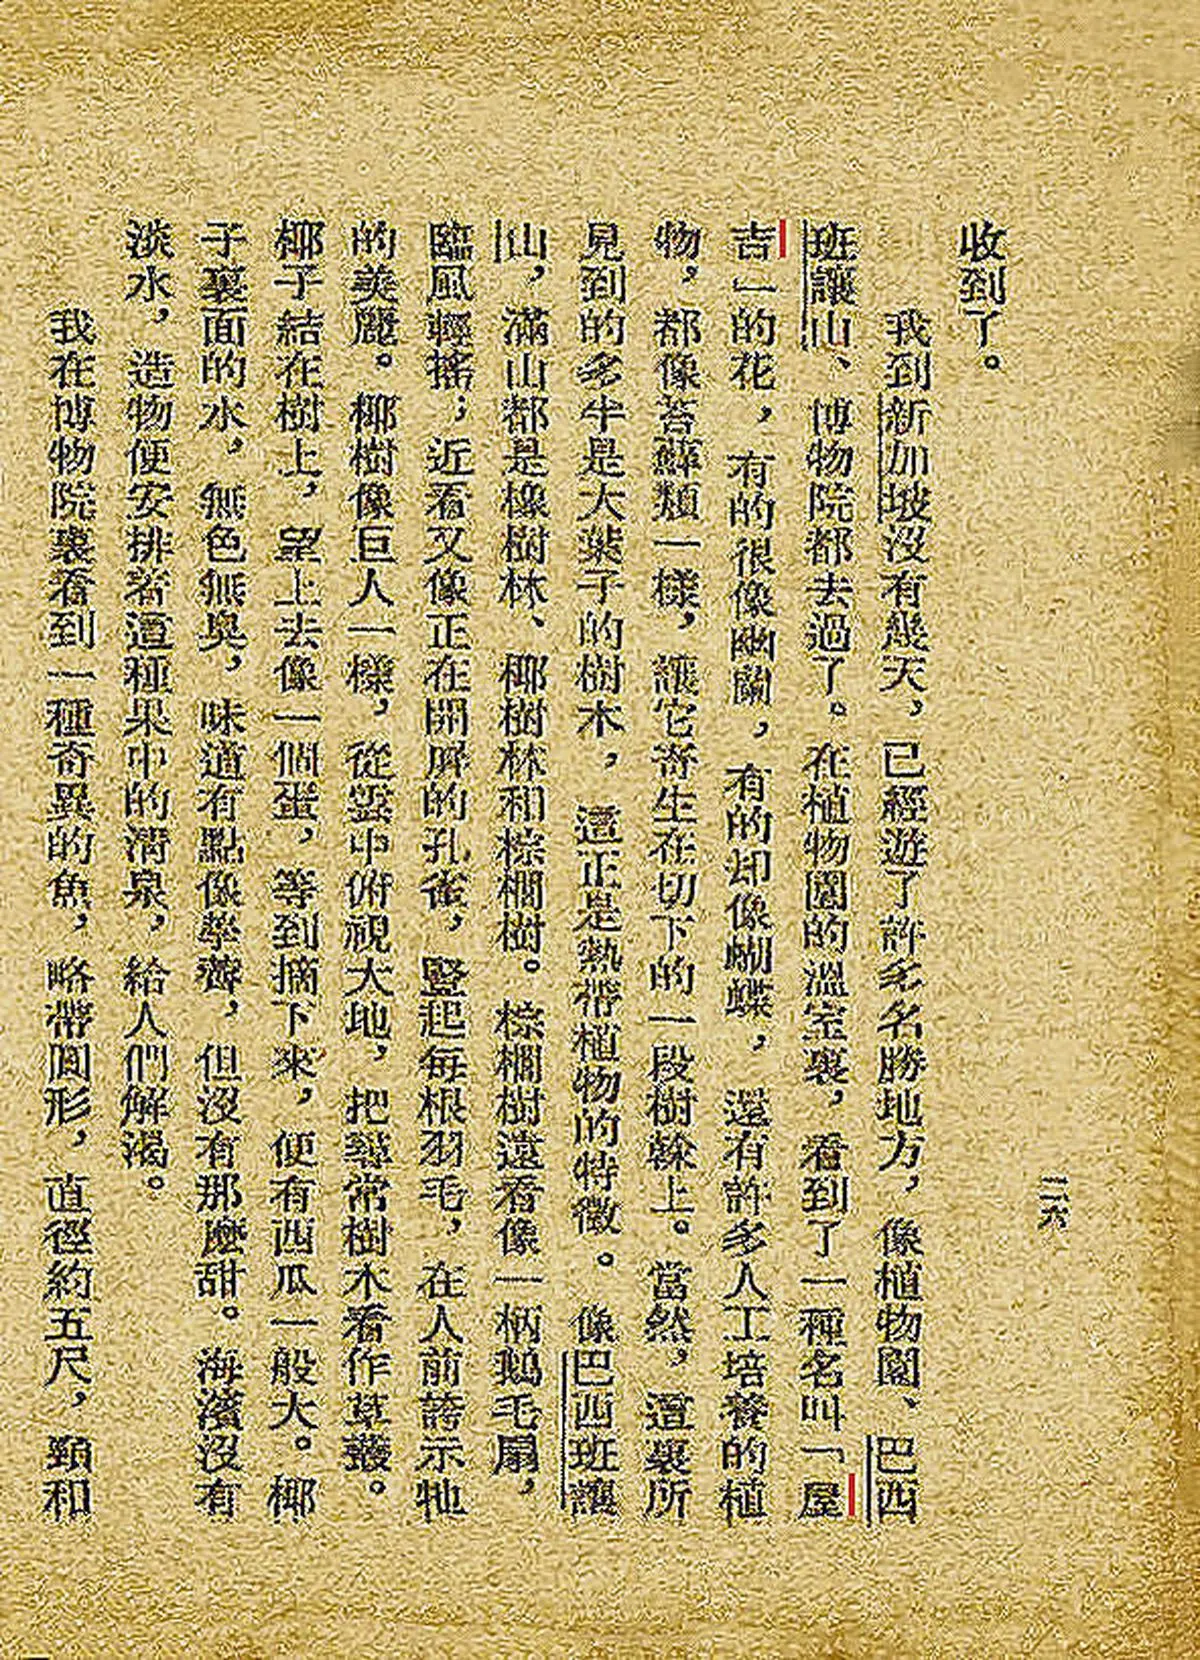 二六
收到了。
我到新加坡沒有幾天，已經遊了許多名勝地方，像植物園、巴西
班讓山、博物院都去過了。在植物園的溫室裏，看到了一種名叫「屋
吉」的花，有的很像幽蘭，有的却像蝴蝶，還有許多人工培養的植
物，都像苔蘚類一樣，讓它寄生在切下的一段樹榦上。當然，這裏所
見到的多半是大葉子的樹木，這正是熱帶植物的特徵。像巴西班讓
山，滿山都是橡樹林、椰樹林和棕櫚樹。棕櫚樹遠看像一柄鵝毛扇，
臨風輕搖；近看又像正在開屏的孔雀，豎起每根羽毛，在人前誇示牠
的美麗。椰樹像巨人一樣，從雲中俯視大地，把尋常樹木看作草叢。
椰子結在樹上，望上去像一個蛋，等到摘下來，便有西瓜一般大。椰
子裏面的水，無色無臭，味道有點像荸薺，但沒有那麼甜。海濱沒有
淡水，造物便安排著這種果中的清泉，給人們解渴。
我在博物院裏看到一種奇異的魚，略帶圓形，直徑約五尺，頭和